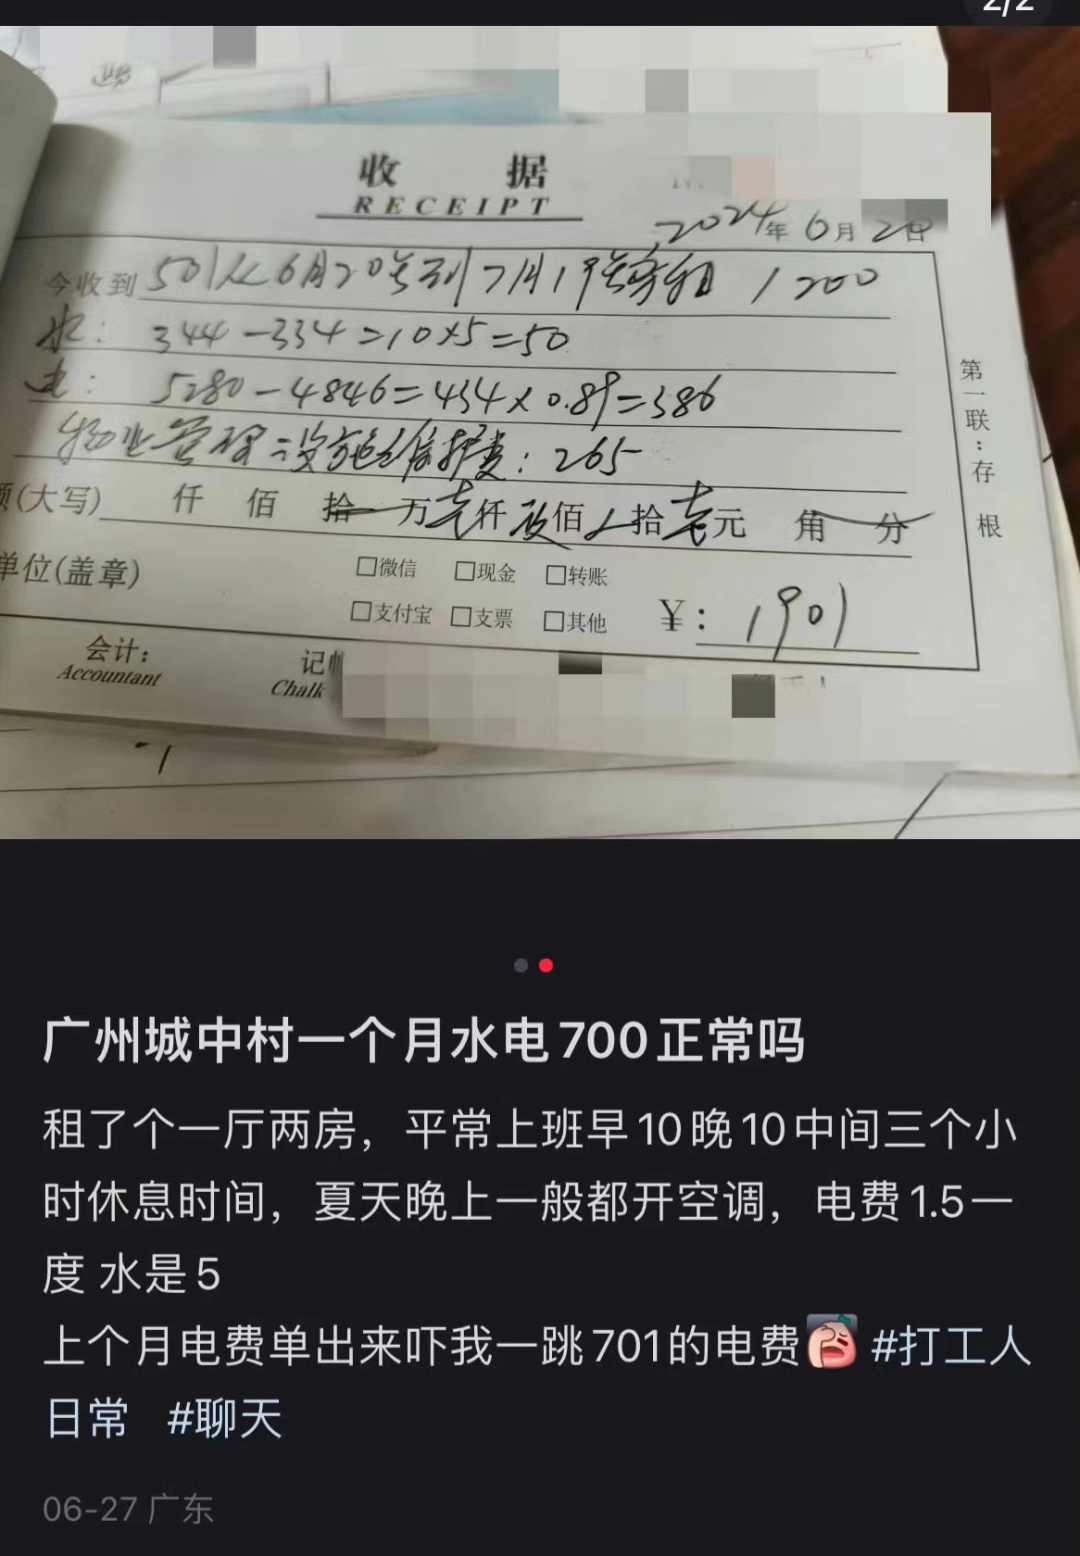 2/2
收 据
RECEIPT
2024年6月20日
今收到 501从6月20号到7月19号房租 1200
水: 344-334=10×5=50
电: 5280-4846=434×0.89=386
物业管理 设施维护费: 265
额(大写) 仟 佰 拾 万壹仟玖佰 拾壹元 角 分
单位(盖章)
□微信 □现金 □转账
□支付宝 □支票 □其他
¥: 1901
会计:
Accountant
记帐
Chalk
第一联:存根
广州城中村一个月水电700正常吗
租了个一厅两房,平常上班早10晚10中间三个小
时休息时间,夏天晚上一般都开空调,电费1.5一
度 水是5
上个月电费单出来吓我一跳701的电费 #打工人
日常 #聊天
06-27 广东